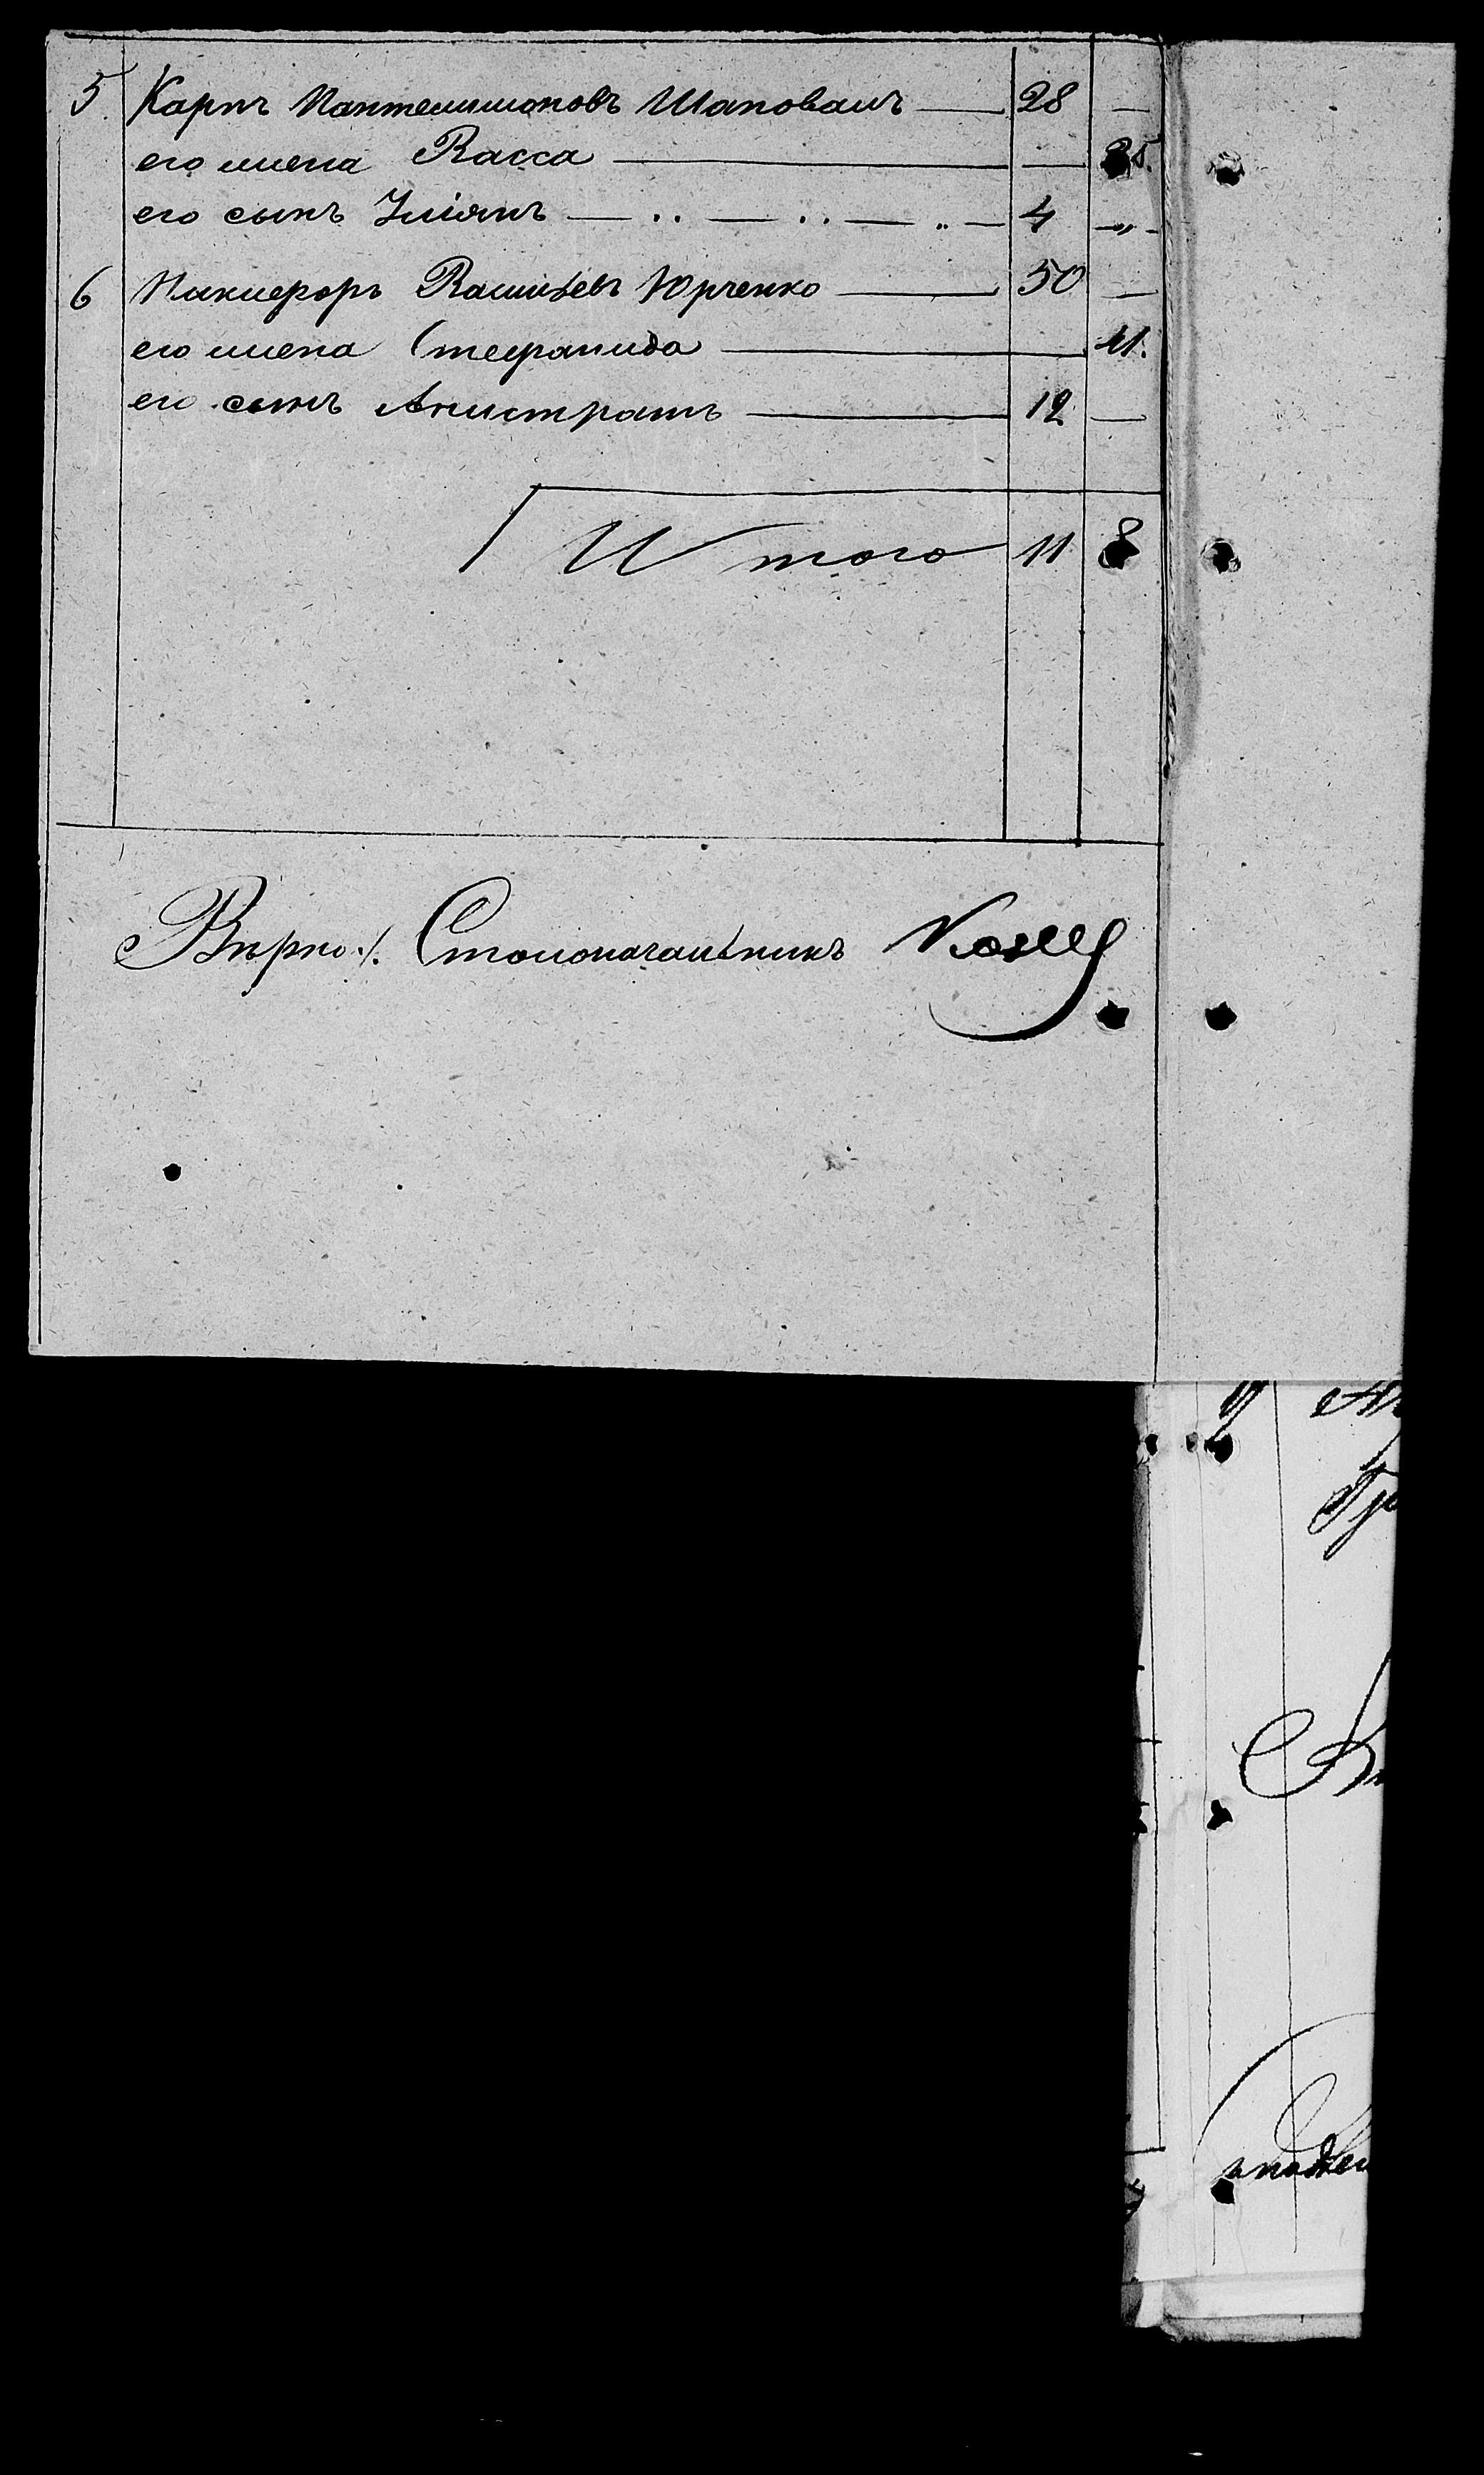 5. Карпъ Пантелимоновъ Шаповалъ — 28 —
его жена Васса — — 25.
его сынъ Уліянъ — 4 „
6 Никифоръ Васильевъ Юрченко — 50 —
его жена Стефанида — 41.
его сынъ Анистратъ — 12 —
Итого 11 8
Вѣрно: Столоначальникъ